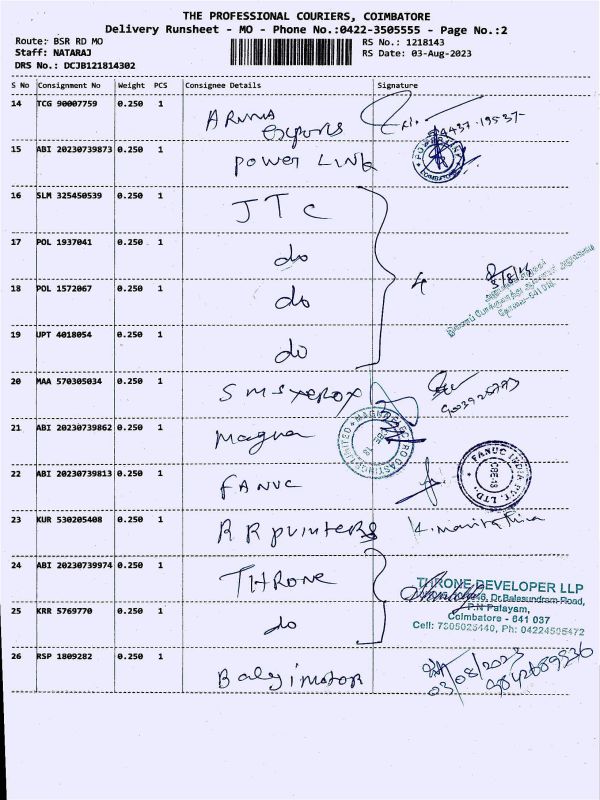 THE PROFESSIONAL COURIERS, COIMBATORE
Delivery Runsheet - MO - Phone No.:0422-3505555 - Page No.:2
Route: BSR RD MO
RS No.: 1218143
Staff: NATARAJ
RS Date: 03-Aug-2023
DRS No.: DCJB121814302
S No Consignment No Weight PCS Consignee Details Signature
14 TCG 90007759 0.250 1 ARUNA
exports
15 ABI 20230739873 0.250 1 power LINK
POWER LINK
COIMBATORE
16 SLM 325450539 0.250 1 JTC
17 POL 1937041 0.250 1 do
18 POL 1572067 0.250 1 do 4
19 UPT 4018054 0.250 1 do
20 MAA 570305034 0.250 1 SMS xerox
21 ABI 20230739862 0.250 1 Magna
22 ABI 20230739813 0.250 1 FANUC
FANUC INDIA PVT. LTD.
CBE-18
23 KUR 530205408 0.250 1 RR printers
24 ABI 20230739974 0.250 1 THRONE
THRONE DEVELOPER LLP
Dr.Balasundram Road,
P.N Palayam,
Coimbatore - 641 037
25 KRR 5769770 0.250 1 do
26 RSP 1809282 0.250 1 Balaji motor
03/08/2023